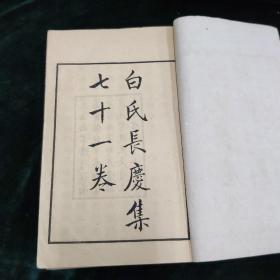 白氏長慶集
七十一卷